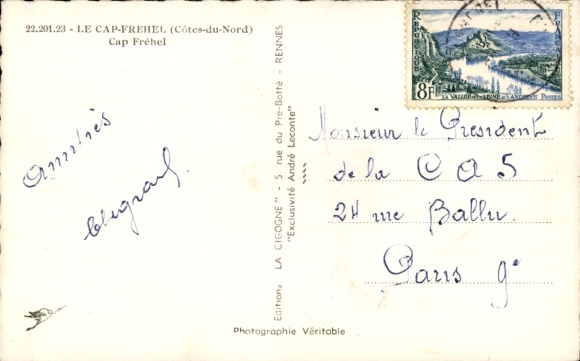 22.201.23 - LE CAP-FREHEL (Côtes-du-Nord)
Cap Fréhel
Amitiés
Editions LA CIGOGNE" - 5 rue du Pré-Botté - RENNES
"Exclusivité André Leconte"
Photographie Véritable
REPUBLIQUE
FRANÇAISE
8F
LA VALLEE DE LA SEINE AUX ANDELYS POSTES
Monsieur le President
de la C A S
24 rue Ballu.
Paris 9e